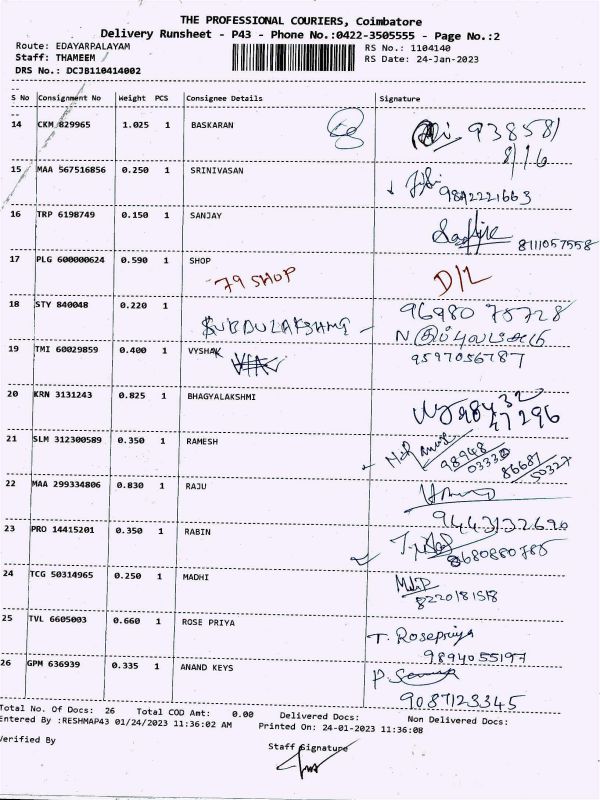 THE PROFESSIONAL COURIERS, Coimbatore
Delivery Runsheet - P43 - Phone No.:0422-3505555 - Page No.:2
Route: EDAYARPALAYAM RS No.: 1104140
Staff: THAMEEM RS Date: 24-Jan-2023
DRS No.: DCJB110414002
S No Consignment No Weight PCS Consignee Details Signature
14 CKM 829965 1.025 1 BASKARAN 93858/
8/16
15 MAA 567516856 0.250 1 SRINIVASAN
9842221663
16 TRP 6198749 0.150 1 SANJAY
8111057558
17 PLG 600000624 0.590 1 SHOP
79 SHOP D/L
18 STY 840048 0.220 1 96980 75728
SUBBULAKSHMI
19 TMI 60029859 0.400 1 VYSHAK 9597056787
20 KRN 3131243 0.825 1 BHAGYALAKSHMI
47296
21 SLM 312300589 0.350 1 RAMESH
98948 03330 86687 50327
22 MAA 299334806 0.830 1 RAJU
9443132690
23 PRO 14415201 0.350 1 RABIN
8680880785
24 TCG 50314965 0.250 1 MADHI
8220181518
25 TVL 6605003 0.660 1 ROSE PRIYA
T. Rosepriya
9894055197
26 GPM 636939 0.335 1 ANAND KEYS
9087123345
Total No. Of Docs: 26 Total COD Amt: 0.00 Delivered Docs: Non Delivered Docs:
Entered By :RESHMAP43 01/24/2023 11:36:02 AM Printed On: 24-01-2023 11:36:08
Verified By Staff Signature